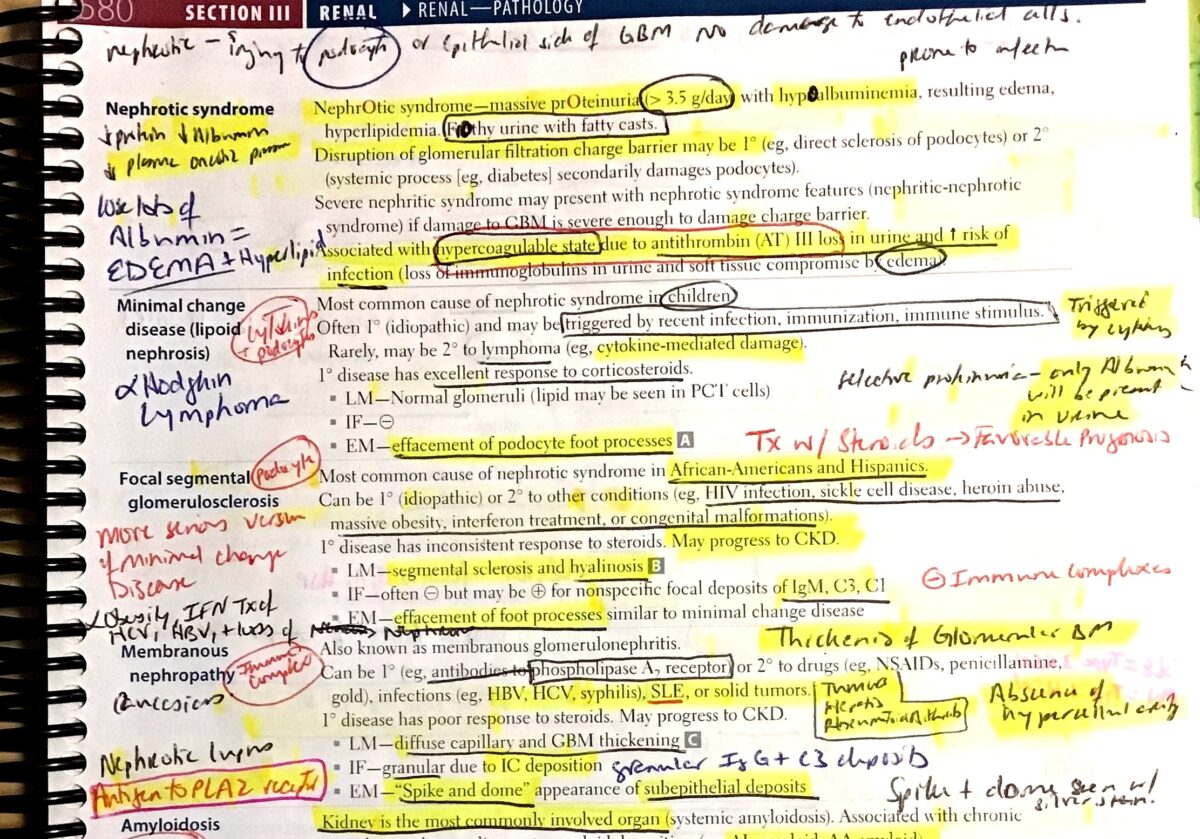 580 SECTION III RENAL ▶ RENAL—PATHOLOGY
nephrotic – injury to podocyte or epithelial side of GBM No damage to endothelial cells.
prone to infection
Nephrotic syndrome
↓ protein ↓ Albumin
↓ plasma oncotic pressure
Lose lots of
Albumin =
EDEMA + Hyperlipid
NephrOtic syndrome—massive prOteinuria (> 3.5 g/day) with hypoalbuminemia, resulting edema,
hyperlipidemia. Frothy urine with fatty casts.
Disruption of glomerular filtration charge barrier may be 1° (eg, direct sclerosis of podocytes) or 2°
(systemic process [eg, diabetes] secondarily damages podocytes).
Severe nephritic syndrome may present with nephrotic syndrome features (nephritic-nephrotic
syndrome) if damage to GBM is severe enough to damage charge barrier.
Associated with hypercoagulable state due to antithrombin (AT) III loss in urine and ↑ risk of
infection (loss of immunoglobulins in urine and soft tissue compromise by edema).
Minimal change
disease (lipoid
nephrosis)
Cytokine
podocyte
Hodgkin
Lymphoma
Most common cause of nephrotic syndrome in children
Often 1° (idiopathic) and may be triggered by recent infection, immunization, immune stimulus.
Triggered
by cytokine
Rarely, may be 2° to lymphoma (eg, cytokine-mediated damage).
1° disease has excellent response to corticosteroids.
selective proteinuria – only Albumin
will be present
in urine
▪ LM—Normal glomeruli (lipid may be seen in PCT cells)
▪ IF—⊖
▪ EM—effacement of podocyte foot processes A
Tx w/ Steroids → Favorable Prognosis
Focal segmental
glomerulosclerosis
Podocyte
More serious version
of minimal change
Disease
Obesity, IFN Tx of
HCV, HBV, + loss of
Most common cause of nephrotic syndrome in African-Americans and Hispanics.
Can be 1° (idiopathic) or 2° to other conditions (eg, HIV infection, sickle cell disease, heroin abuse,
massive obesity, interferon treatment, or congenital malformations).
1° disease has inconsistent response to steroids. May progress to CKD.
▪ LM—segmental sclerosis and hyalinosis B
▪ IF—often ⊖ but may be ⊕ for nonspecific focal deposits of IgM, C3, C1
⊖ Immune complexes
▪ EM—effacement of foot processes similar to minimal change disease
Thickening of Glomerular BM
Membranous
nephropathy
Immune
Complex
Nephrotic lupus
Antigen to PLA2 receptor
Also known as membranous glomerulonephritis.
Can be 1° (eg, antibodies to phospholipase A₂ receptor) or 2° to drugs (eg, NSAIDs, penicillamine,
gold), infections (eg, HBV, HCV, syphilis), SLE, or solid tumors.
1° disease has poor response to steroids. May progress to CKD.
Absence of
hypercellularity
▪ LM—diffuse capillary and GBM thickening C
▪ IF—granular due to IC deposition granular IgG + C3 deposits
▪ EM—“Spike and dome” appearance of subepithelial deposits
Spike + dome seen w/
silver stain.
Amyloidosis
Kidney is the most commonly involved organ (systemic amyloidosis). Associated with chronic